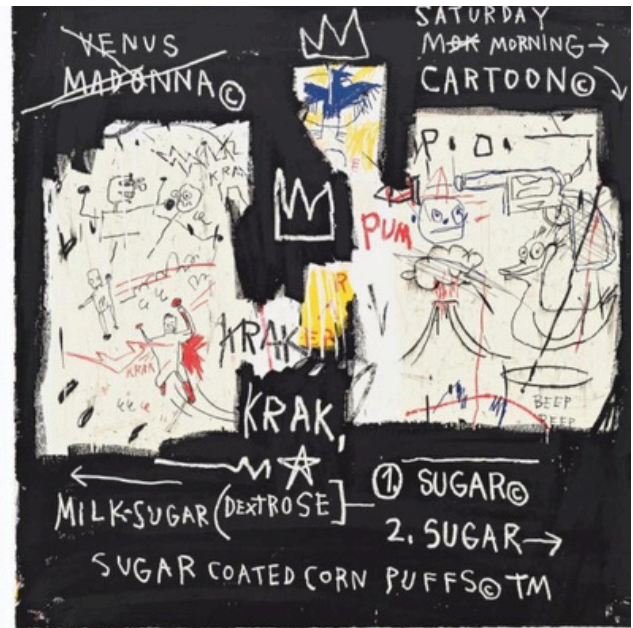 VENUS
MADONNA©
SATURDAY
MOR MORNING→
CARTOON©
KRA
P.O.
PUM
R
E
KRAK
KRAK
BEEP
BEEP
KRAK,
MILK-SUGAR (DEXTROSE]
1. SUGAR©
2. SUGAR→
SUGAR COATED CORN PUFFS© TM